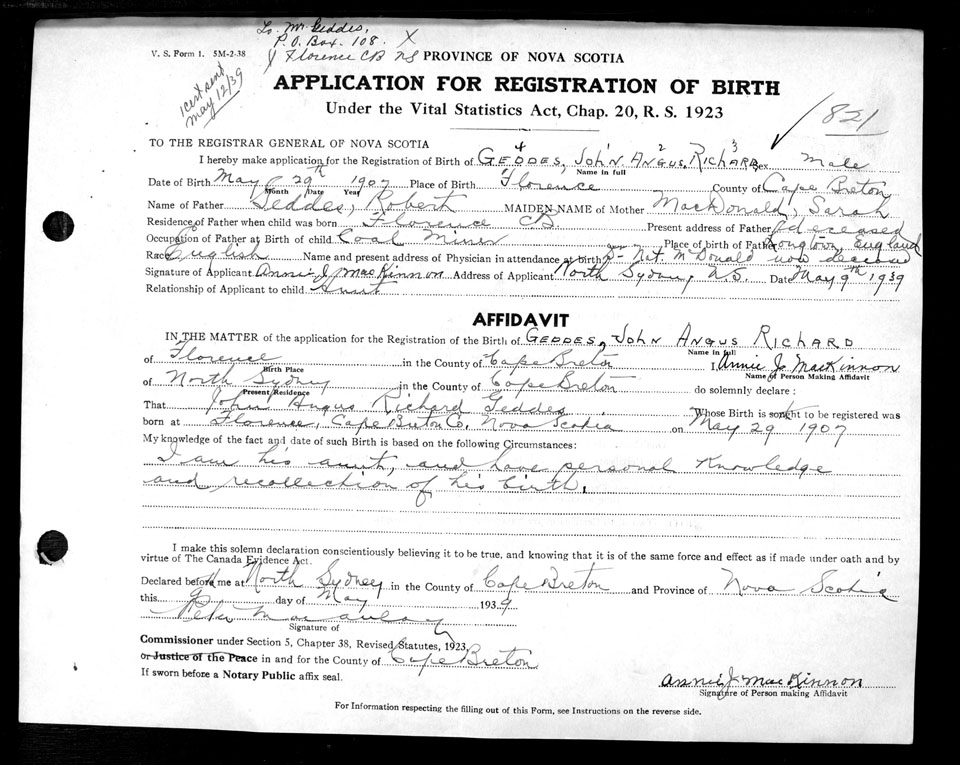 To. Mr. Geddes,
P.O. Box. 108. X
V. S. Form 1. 5M-2-38
Florence CB NS PROVINCE OF NOVA SCOTIA
1 cert sent
May 12/39
APPLICATION FOR REGISTRATION OF BIRTH
Under the Vital Statistics Act, Chap. 20, R. S. 1923
821
TO THE REGISTRAR GENERAL OF NOVA SCOTIA
4 2 3
I hereby make application for the Registration of Birth of GEDDES, JOHN ANGUS RICHARD Sex Male
Name in full
Date of Birth May 29th 1907 Place of Birth Florence County of Cape Breton
Month Date Year
Name of Father Geddes, Robert MAIDEN NAME of Mother MacDonald, Sarah
Residence of Father when child was born Florence CB Present address of Father deceased
Occupation of Father at Birth of child Coal Miner Place of birth of Father Longtown, England
Race English Name and present address of Physician in attendance at birth Nat McDonald now deceased
Signature of Applicant Annie J MacKinnon Address of Applicant North Sydney, N.S. Date May 9th 1939
Relationship of Applicant to child Aunt
AFFIDAVIT
IN THE MATTER of the application for the Registration of the Birth of GEDDES, JOHN ANGUS RICHARD
Name in full
of Florence in the County of Cape Breton I, Annie J. MacKinnon
Birth Place Name of Person Making Affidavit
of North Sydney in the County of Cape Breton do solemnly declare :
Present Residence
That John Angus Richard Geddes Whose Birth is sought to be registered was
born at Florence, Cape Breton Co. Nova Scotia on May 29 1907
My knowledge of the fact and date of such Birth is based on the following Circumstances:
I am his aunt, and have personal knowledge
and recollection of his birth.
I make this solemn declaration conscientiously believing it to be true, and knowing that it is of the same force and effect as if made under oath and by
virtue of The Canada Evidence Act.
Declared before me at North Sydney in the County of Cape Breton and Province of Nova Scotia
this 9th day of May 1939
Peter Macaulay
Signature of
Commissioner under Section 5, Chapter 38, Revised Statutes, 1923,
or Justice of the Peace in and for the County of Cape Breton
If sworn before a Notary Public affix seal.
Annie J MacKinnon
Signature of Person making Affidavit
For Information respecting the filling out of this Form, see Instructions on the reverse side.